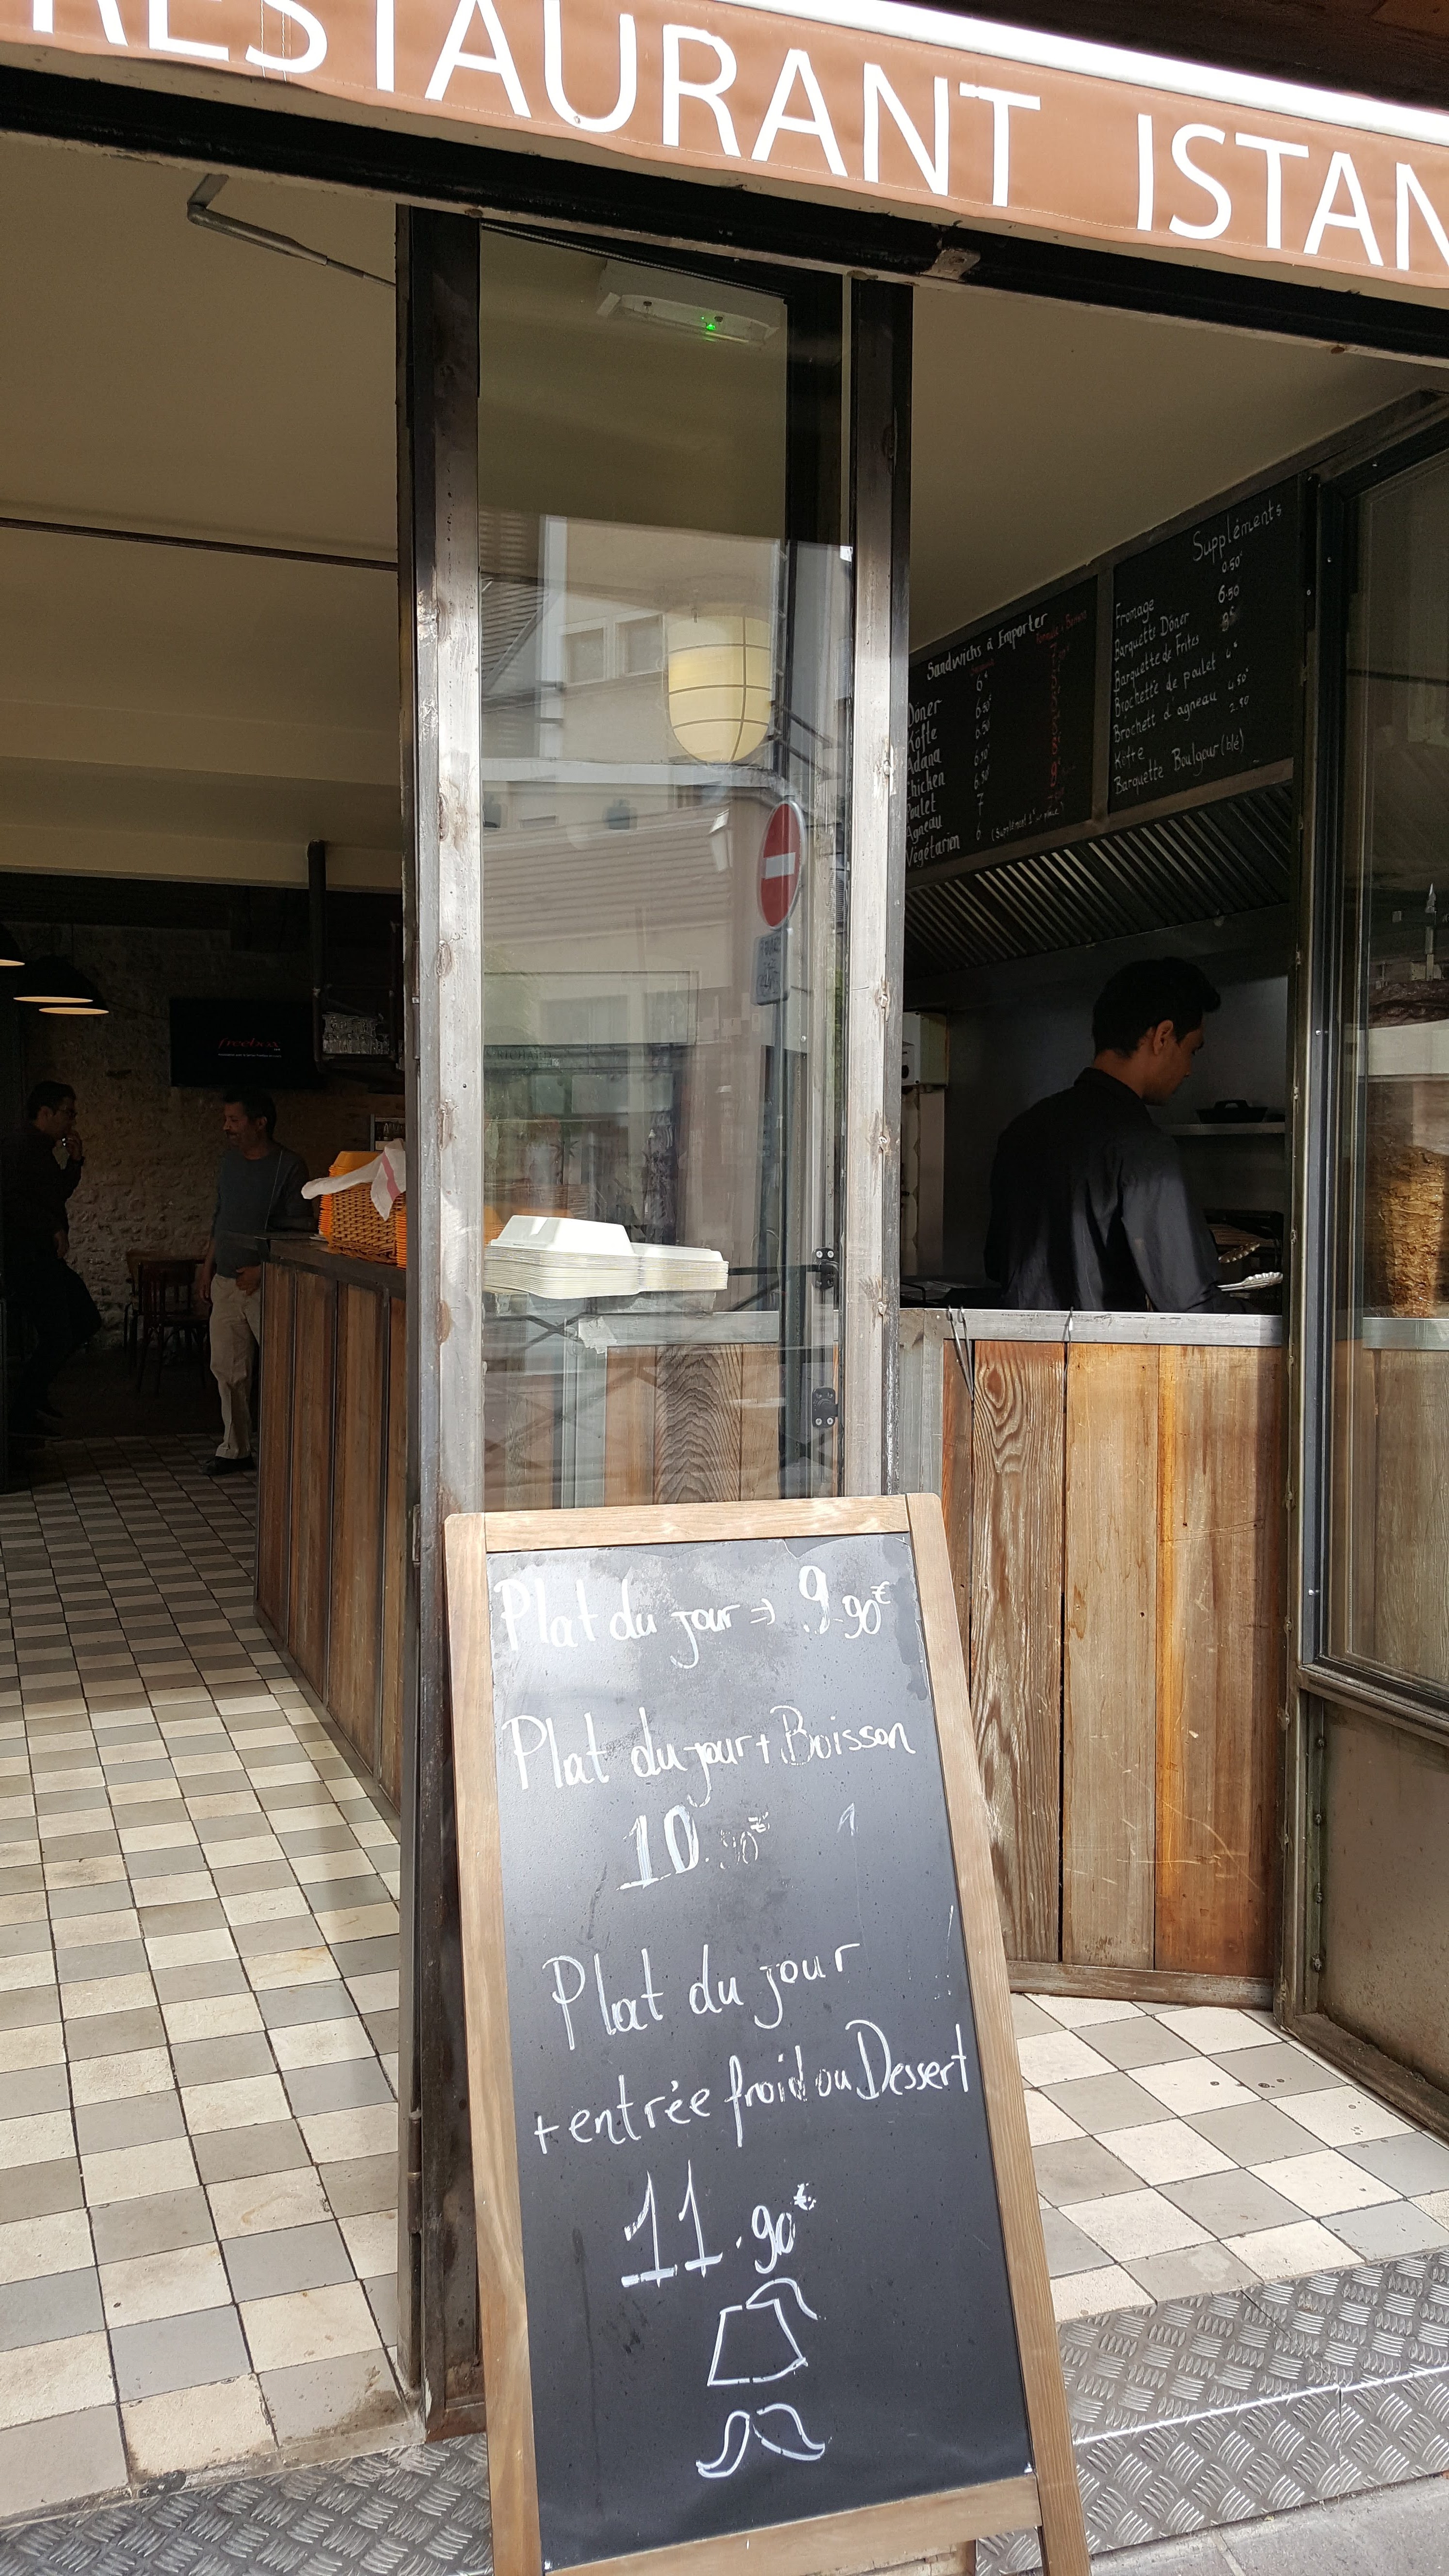 RESTAURANT ISTAN
Suppléments
0.50€
Fromage 6.50
Barquette Döner
Barquette de Frites
Brochette de poulet 4€
Brochett d agneau 4.50€
Köfte 2.50
Barquette Boulgour (blé)
Sandwichs à Emporter
Döner 6€
Köfte 6.50€
Adana 6.50
Chicken 6.50€
Poulet 6.50€
Agneau 7
Végétarien 6
freebox
Plat du jour => 9.90€
Plat du jour + Boisson
10.90€
Plat du jour
+ entrée froid ou Dessert
11.90€